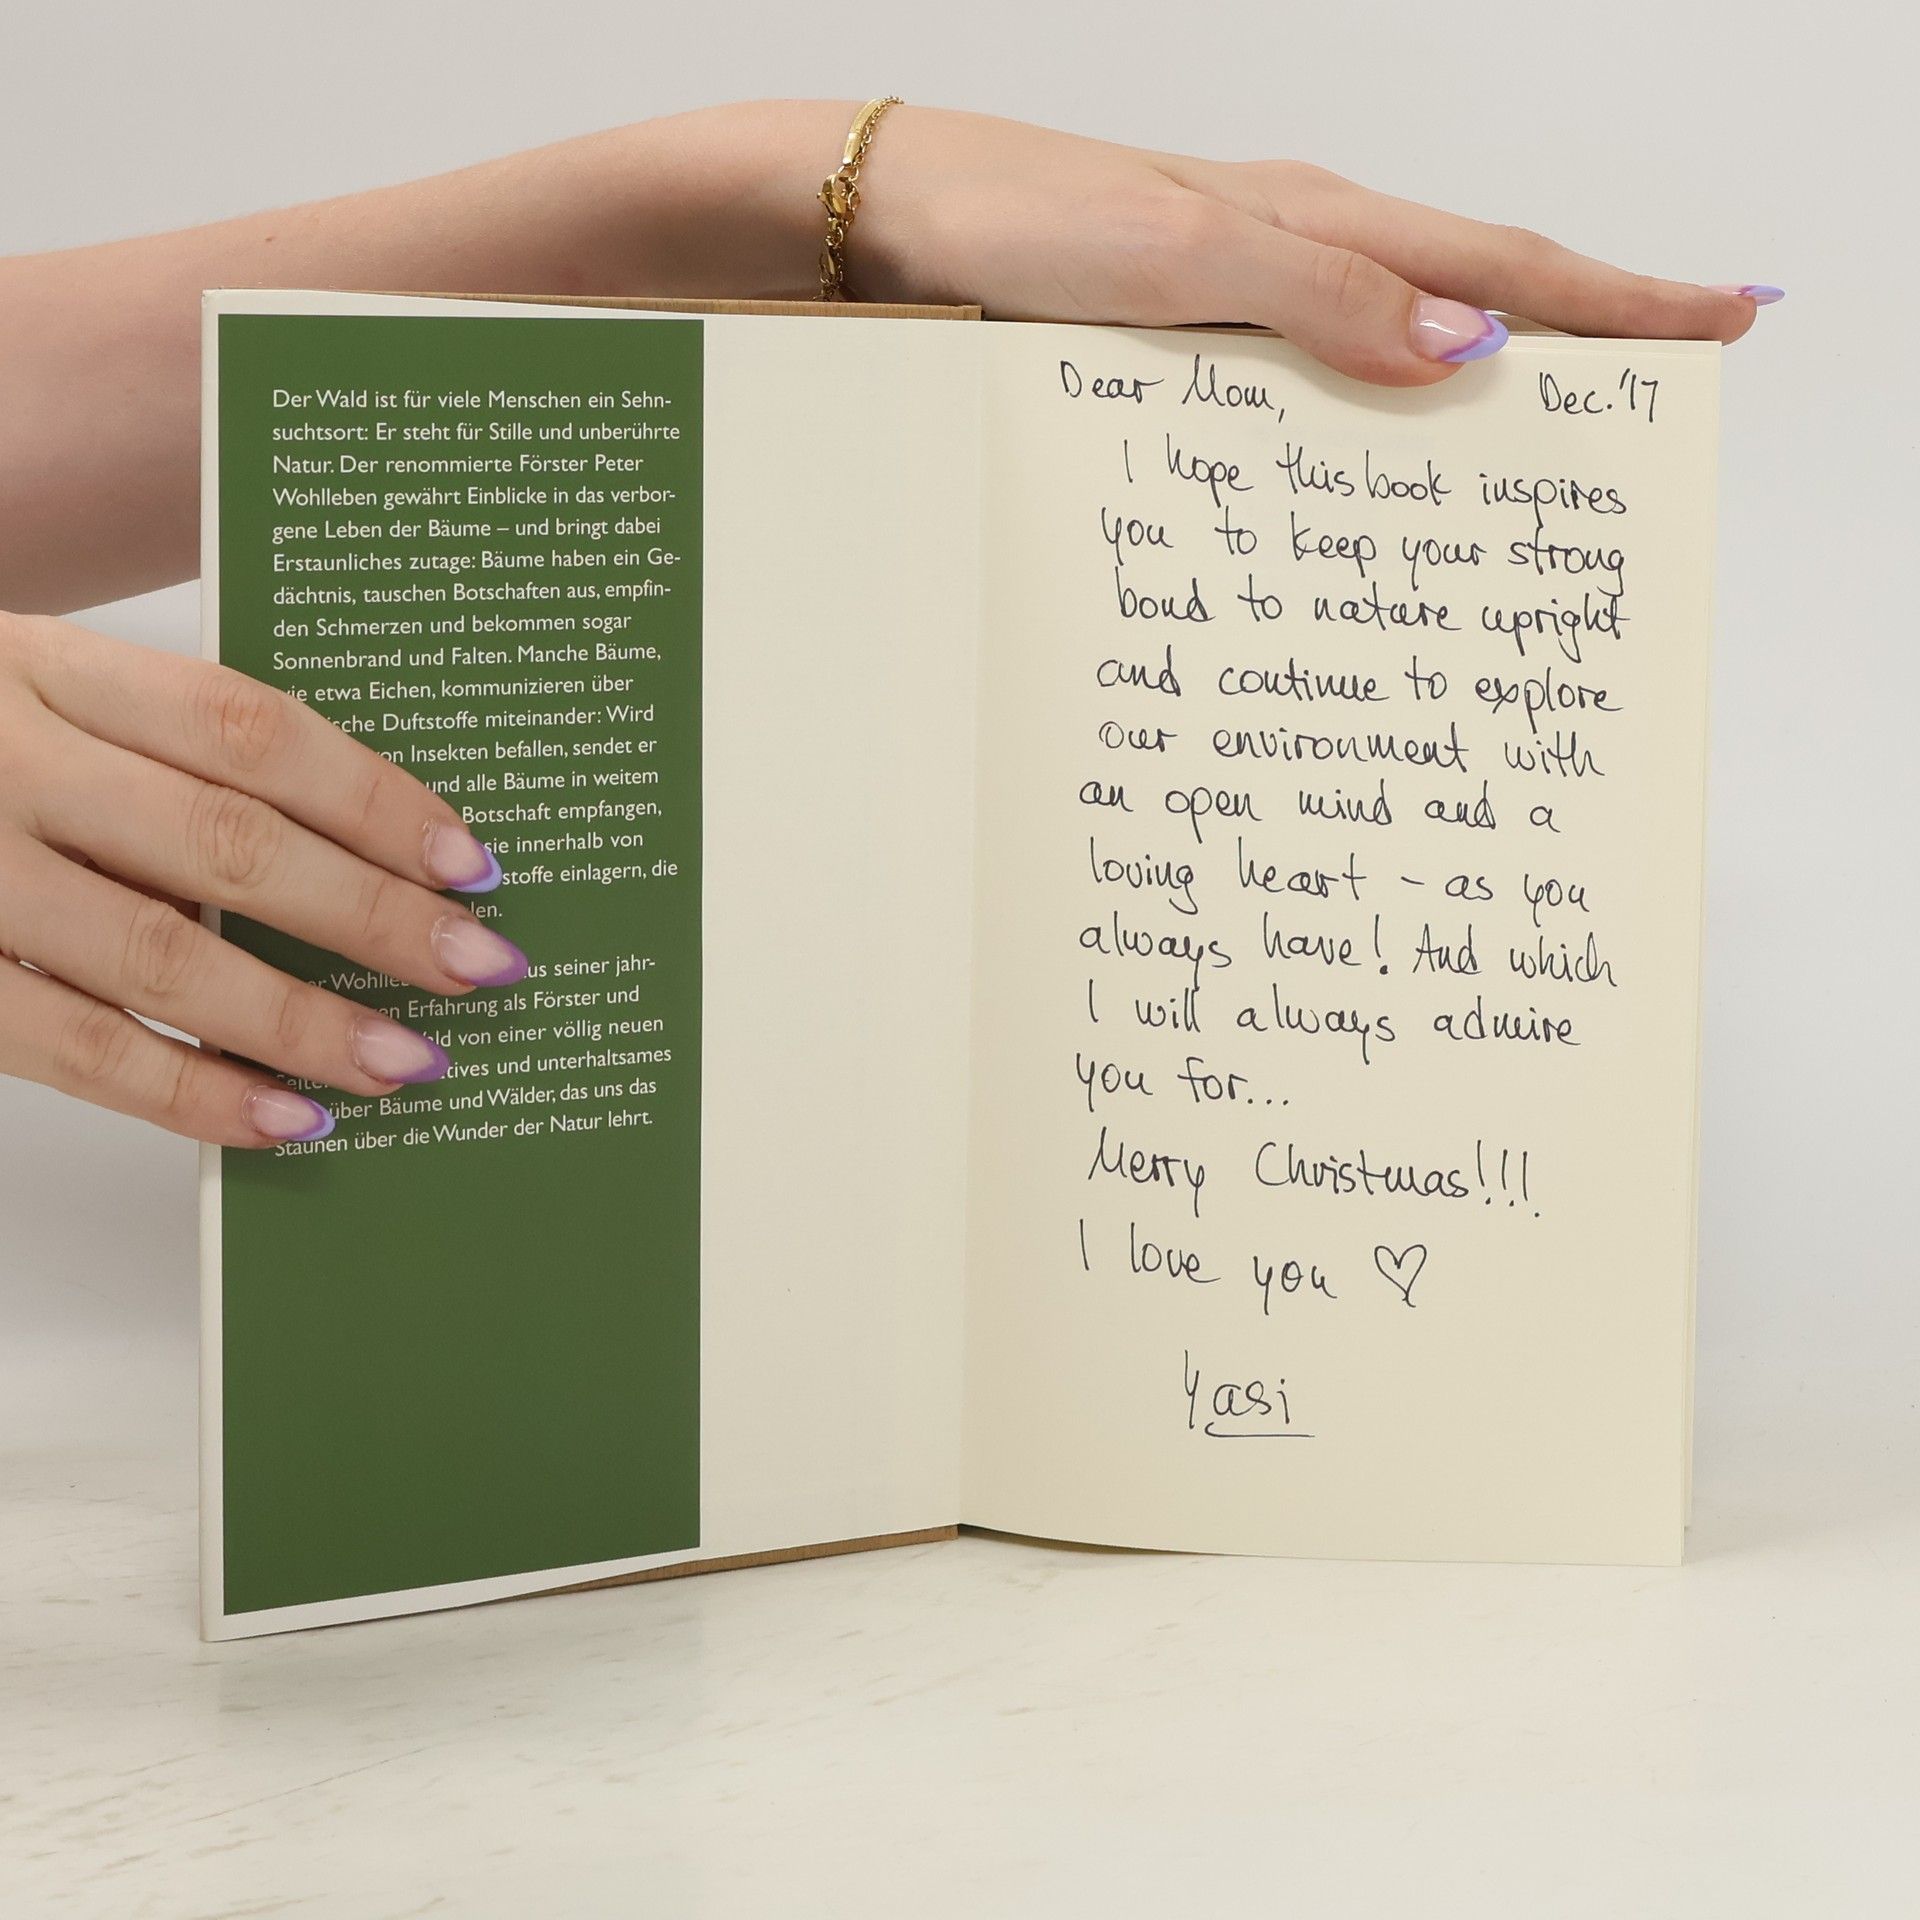 Der Wald ist für viele Menschen ein Sehn-
suchtsort: Er steht für Stille und unberührte
Natur. Der renommierte Förster Peter
Wohlleben gewährt Einblicke in das verbor-
gene Leben der Bäume – und bringt dabei
Erstaunliches zutage: Bäume haben ein Ge-
dächtnis, tauschen Botschaften aus, empfin-
den Schmerzen und bekommen sogar
Sonnenbrand und Falten. Manche Bäume,
etwa Eichen, kommunizieren über
Duftstoffe miteinander: Wird
Insekten befallen, sendet er
und alle Bäume in weitem
Botschaft empfangen,
sie innerhalb von
einlagern, die
seiner jahr-
Erfahrung als Förster und
von einer völlig neuen
und unterhaltsames
über Bäume und Wälder, das uns das
Staunen über die Wunder der Natur lehrt.
Dear Mom, Dec. '17
I hope this book inspires
you to keep your strong
bond to nature upright
and continue to explore
our environment with
an open mind and a
loving heart - as you
always have! And which
I will always admire
you for...
Merry Christmas!!!
I love you ♡
Yasi